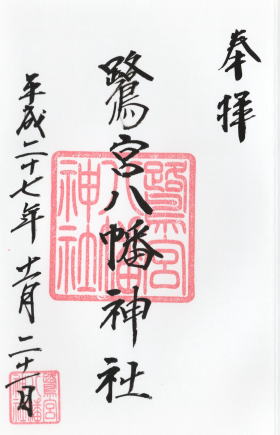 奉拝
鷺宮八幡神社
平成二十七年十一月二十一日
鷺宮
八幡
神社
鷺宮
八幡
神社